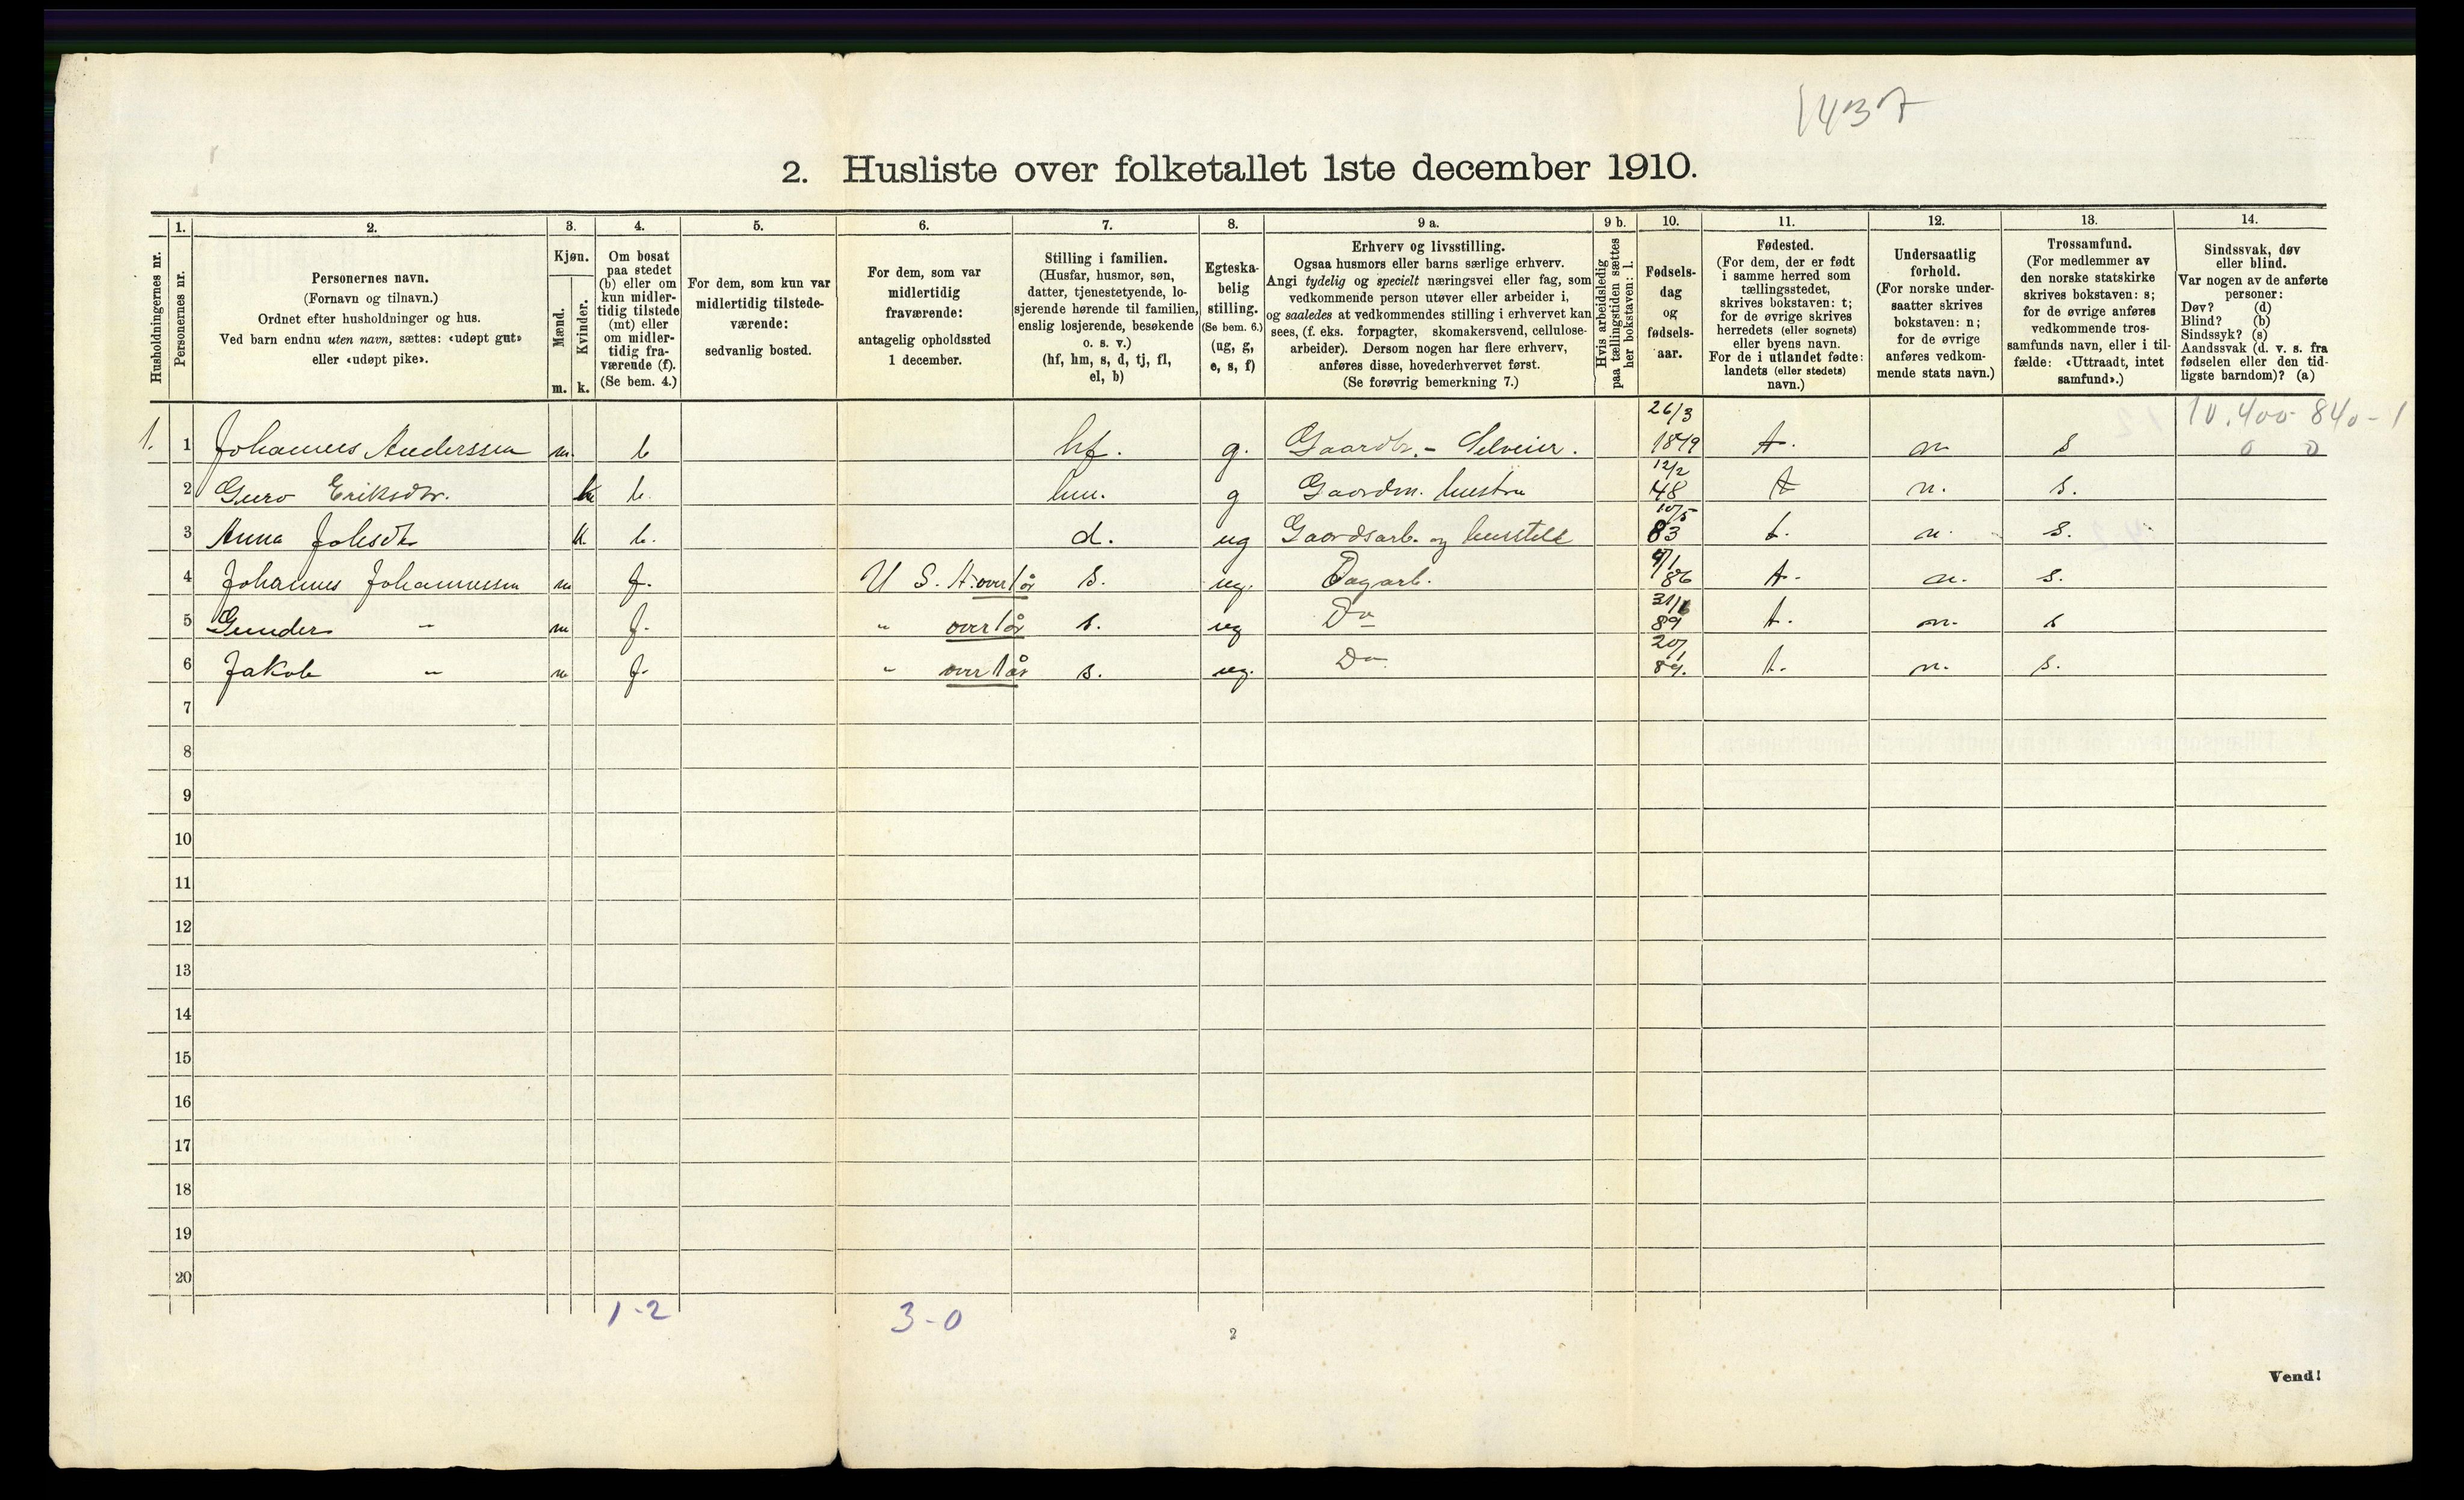 1437
2. Husliste over folketallet 1ste december 1910.
Husholdningernes nr.
1.
Personernes nr.
2.
Personernes navn.
(Fornavn og tilnavn.)
Ordnet efter husholdninger og hus.
Ved barn endnu uten navn, sættes: «udøpt gut»
eller «udøpt pike».
3.
Kjøn.
Mænd.
Kvinder.
m. k.
4.
Om bosat
paa stedet
(b) eller om
kun midler-
tidig tilstede
(mt) eller
om midler-
tidig fra-
værende (f).
(Se bem. 4.)
5.
For dem, som kun var
midlertidig tilstede-
værende:
sedvanlig bosted.
6.
For dem, som var
midlertidig
fraværende:
antagelig opholdssted
1 december.
7.
Stilling i familien.
(Husfar, husmor, søn,
datter, tjenestetyende, lo-
sjerende hørende til familien,
enslig losjerende, besøkende
o. s. v.)
(hf, hm, s, d, tj, fl,
el, b)
8.
Egteska-
belig
stilling.
(Se bem. 6.)
(ug, g,
e, s, f)
9 a.
Erhverv og livsstilling.
Ogsaa husmors eller barns særlige erhverv.
Angi tydelig og specielt næringsvei eller fag, som
vedkommende person utøver eller arbeider i,
og saaledes at vedkommendes stilling i erhvervet kan
sees, (f. eks. forpagter, skomakersvend, cellulose-
arbeider). Dersom nogen har flere erhverv,
anføres disse, hovederhvervet først.
(Se forøvrig bemerkning 7.)
9 b.
Hvis arbeidsledig
paa tællingstiden sættes
her bokstaven: l.
10.
Fødsels-
dag
og
fødsels-
aar.
11.
Fødested.
(For dem, der er født
i samme herred som
tællingsstedet,
skrives bokstaven: t;
for de øvrige skrives
herredets (eller sognets)
eller byens navn.
For de i utlandet fødte:
landets (eller stedets)
navn.)
12.
Undersaatlig
forhold.
(For norske under-
saatter skrives
bokstaven: n;
for de øvrige
anføres vedkom-
mende stats navn.)
13.
Trossamfund.
(For medlemmer av
den norske statskirke
skrives bokstaven: s;
for de øvrige anføres
vedkommende tros-
samfunds navn, eller i til-
fælde: «Uttraadt, intet
samfund».)
14.
Sindssvak, døv
eller blind.
Var nogen av de anførte
personer:
Døv? (d)
Blind? (b)
Sindssyk? (s)
Aandssvak (d. v. s. fra
fødselen eller den tid-
ligste barndom)? (a)
10.400 840-1
0 0
1. 1 Johannes Anderssen m. b hf. g. Gaardbr. - Selveier. 26/3 1849 t. n s
2 Guro Eriksdtr. k b. hm. g Gaardm. hustru 12/2 48 t n. s.
3 Anna Johsdtr k. b. d. ug Gaardsarb. og husstell 10/5 83 t. n. s.
4 Johannes Johannessen m f. U S. A over 1 år s. ug. Dagarb. /1 86 t. n. s.
5 Gunder " m f. " over 1 år s. ug Do 31/ 89 t. n. s
6 Jakob " m f. " over 1 år s. ug. Do 20/1 89. t. n. s.
7
8
9
10
11
12
13
14
15
16
17
18
19
20
1-2 3-0
2
Vend!